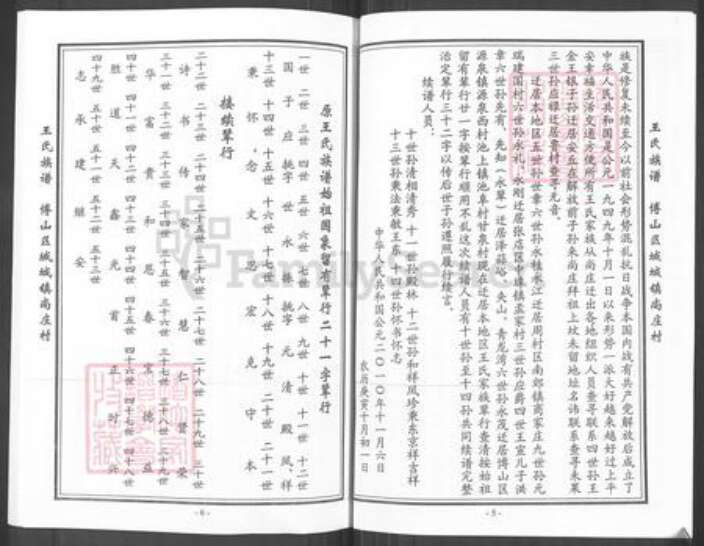 王氏族谱 博山区域城镇尚庄村
族是修复未续至今以前社会形势混乱抗日战争本国内战有共产党解放后成立了
中华人民共和国是公元一九四九年十月一日以来形势一派大好越来越好过上平
安幸福生活交通方便所有王氏家族从尚庄迁出各地组织人员查寻联系四世孙王
金王银子孙迁居安丘在解放前子孙来尚庄拜祖上坟未留地址名讳联系查寻未果
三世孙应禄迁居鲁村查寻无音。
迁居本地区五世孙世章六世孙永桂永江迁居周村区南郊镇商家庄九世孙元
瑞建国村六世孙永礼永刚迁居张店区沣水镇孟家村三世孙应爵四世王宣儿子洪
章六世孙先有、先知(永翠)迁居泽薛峪、夹山、青龙湾六世孙永茂迁居博山区
源泉镇源泉西村池上镇池阜村甘泉村现在迁居本地区王氏家族辈行查清按始祖
留有辈行廿一字按辈行顺用不乱这次续谱人员有十世孙至十四孙共同续谱完整
治定辈行三十二字以传后世子孙遵照履行续言。
续谱人员:
十世孙清相清秀 十一世孙殿林 十二世孙和祥凤珍秉东京祥吉祥
十三世孙秉法秉敏王东 十四世孙怀书怀志
中华人民共和国公元二〇一〇年十一月六日
农历庚寅十月初一日
-5-
原王氏族谱始祖国泉留有辈行二十一字辈行
一世 二世 三世 四世 五世 六世 七世 八世 九世 十世 十一世 十二世
国 子 应 挑字 世 永 挑字 元 清 殿 凤、祥
十三世 十四世 十五世 十六世 十七世 十八世 十九世 二十世 二十一世
秉 怀 念 文 思 宏 克 守 本
接续辈行
二十二世 二十三世 二十四世 二十五世 二十六世 二十七世 二十八世 二十九世 三十世
诗 书 传 家 智 慧 仁 贤 荣
三十一世 三十二世 三十三世 三十四世 三十五世 三十六世 三十七世 三十八世 三十九世
华 富 贵 和 恩 春 宗 德 益
四十世 四十一世 四十二世 四十三世 四十四世 四十五世 四十六世 四十七世 四十八世
胜 道 天 鑫 光 首 正 时 兴
四十九世 五十世 五十一世 五十二世 五十三世
志 永 建 继 安
-6-
王氏族谱 博山区域城镇尚庄村
FamilySearch